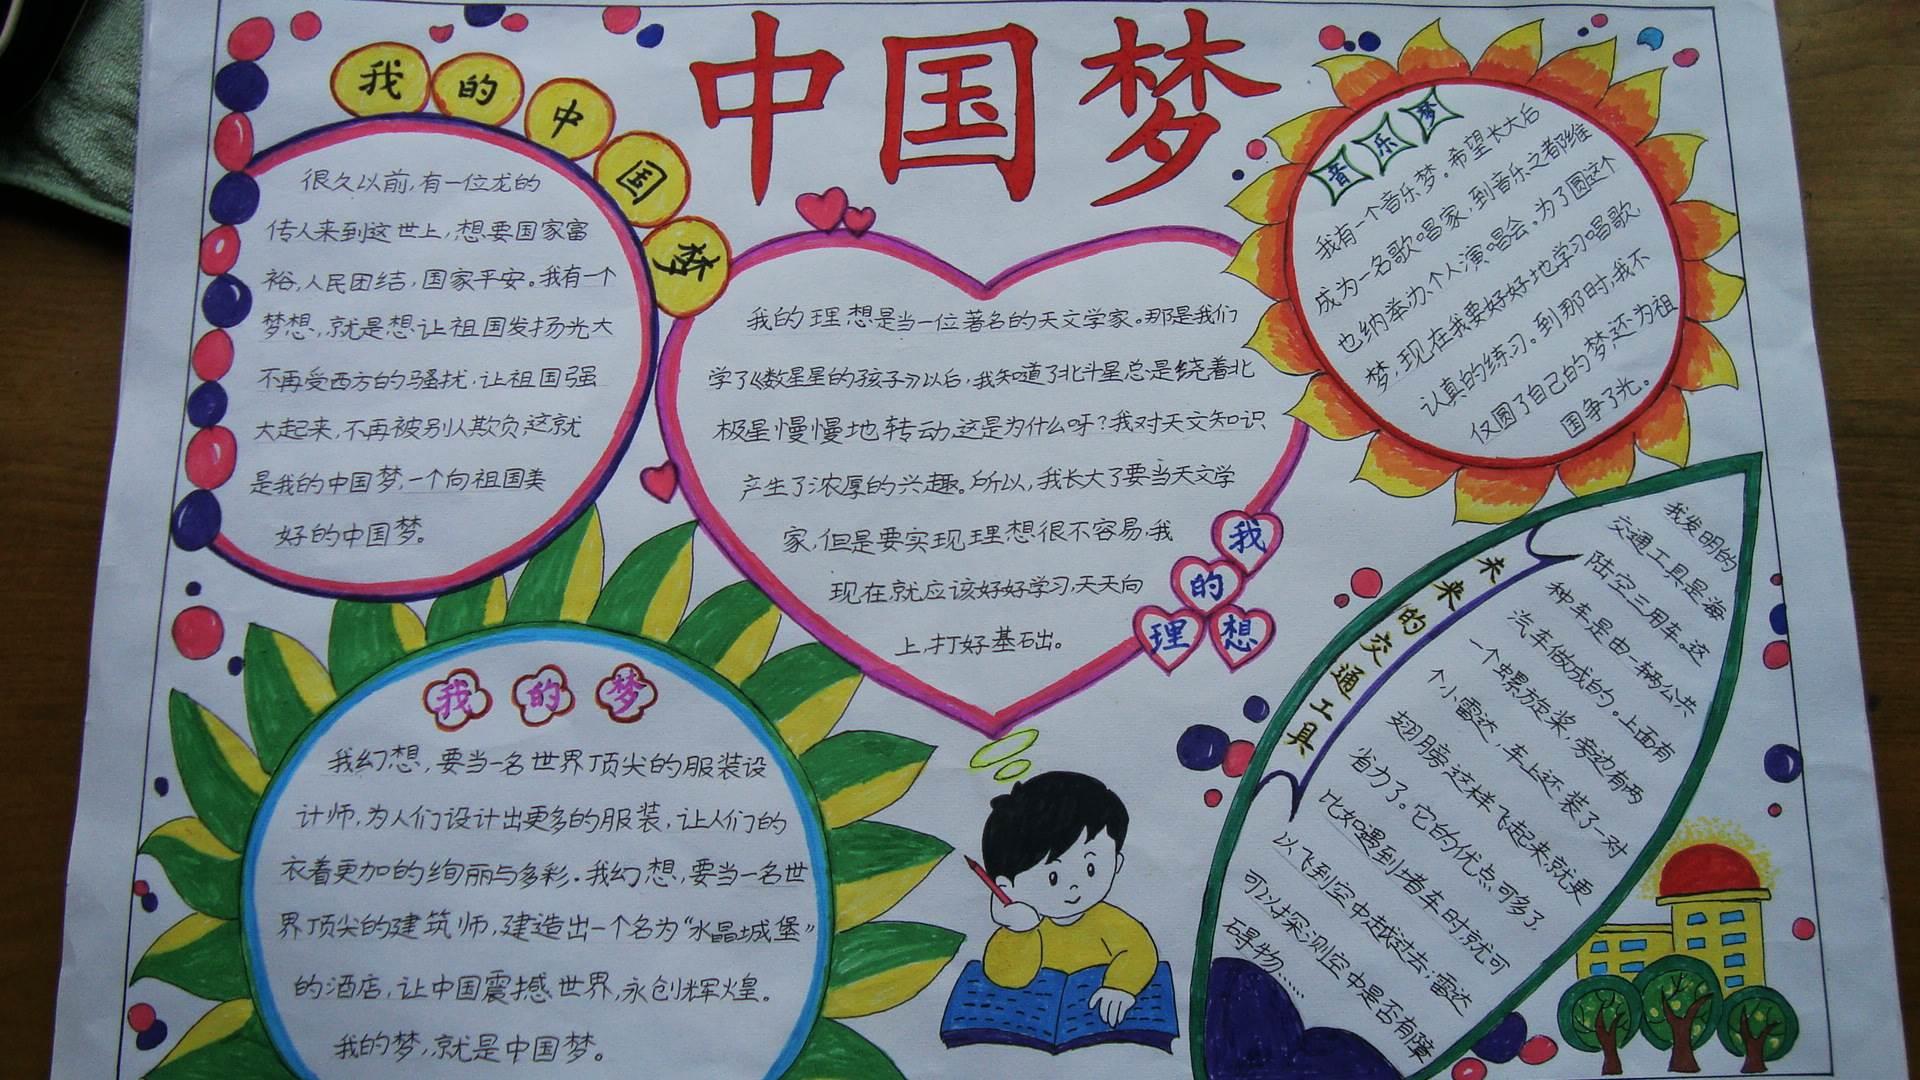 中国梦
我的中国梦
很久以前,有一位龙的
传人来到这世上,想要国家富
裕,人民团结,国家平安。我有一个
梦想,就是想让祖国发扬光大
不再受西方的骚扰,让祖国强
大起来,不再被别人欺负,这就
是我的中国梦,一个向祖国美
好的中国梦。
我的理想是当一位著名的天文学家。那是我们
学了《数星星的孩子》以后,我知道了北斗星总是绕着北
极星慢慢地转动,这是为什么呀?我对天文知识
产生了浓厚的兴趣。所以,我长大了要当天文学
家,但是要实现理想很不容易,我
现在,就应该好好学习,天天向
上,打好基石出。
我的理想
音乐梦
我有一个音乐梦。希望长大后
成为一名歌唱家,到音乐之都维
也纳举办个人演唱会。为了圆这个
梦,现在我要好好地学习唱歌,
认真的练习。到那时,我不
仅圆了自己的梦还为祖
国争了光。
我的梦
我幻想,要当一名世界顶尖的服装设
计师,为人们设计出更多的服装,让人们的
衣着更加的绚丽与多彩。我幻想,要当一名世
界顶尖的建筑师,建造出一个名为“水晶城堡”
的酒店,让中国震撼世界,永创辉煌。
我的梦,就是中国梦。
未来的交通工具
我发明的
交通工具是海
陆空三用车。这
种车是由一辆公共
汽车做成的。上面有
一个螺旋桨,旁边有两
个小雷达,车上还装了一对
翅膀,这样飞起来,就更
省力了。它的优点可多了,
比如:遇到堵车时就可
以飞到空中越过去;雷达
可以探测空中是否有障
碍物……